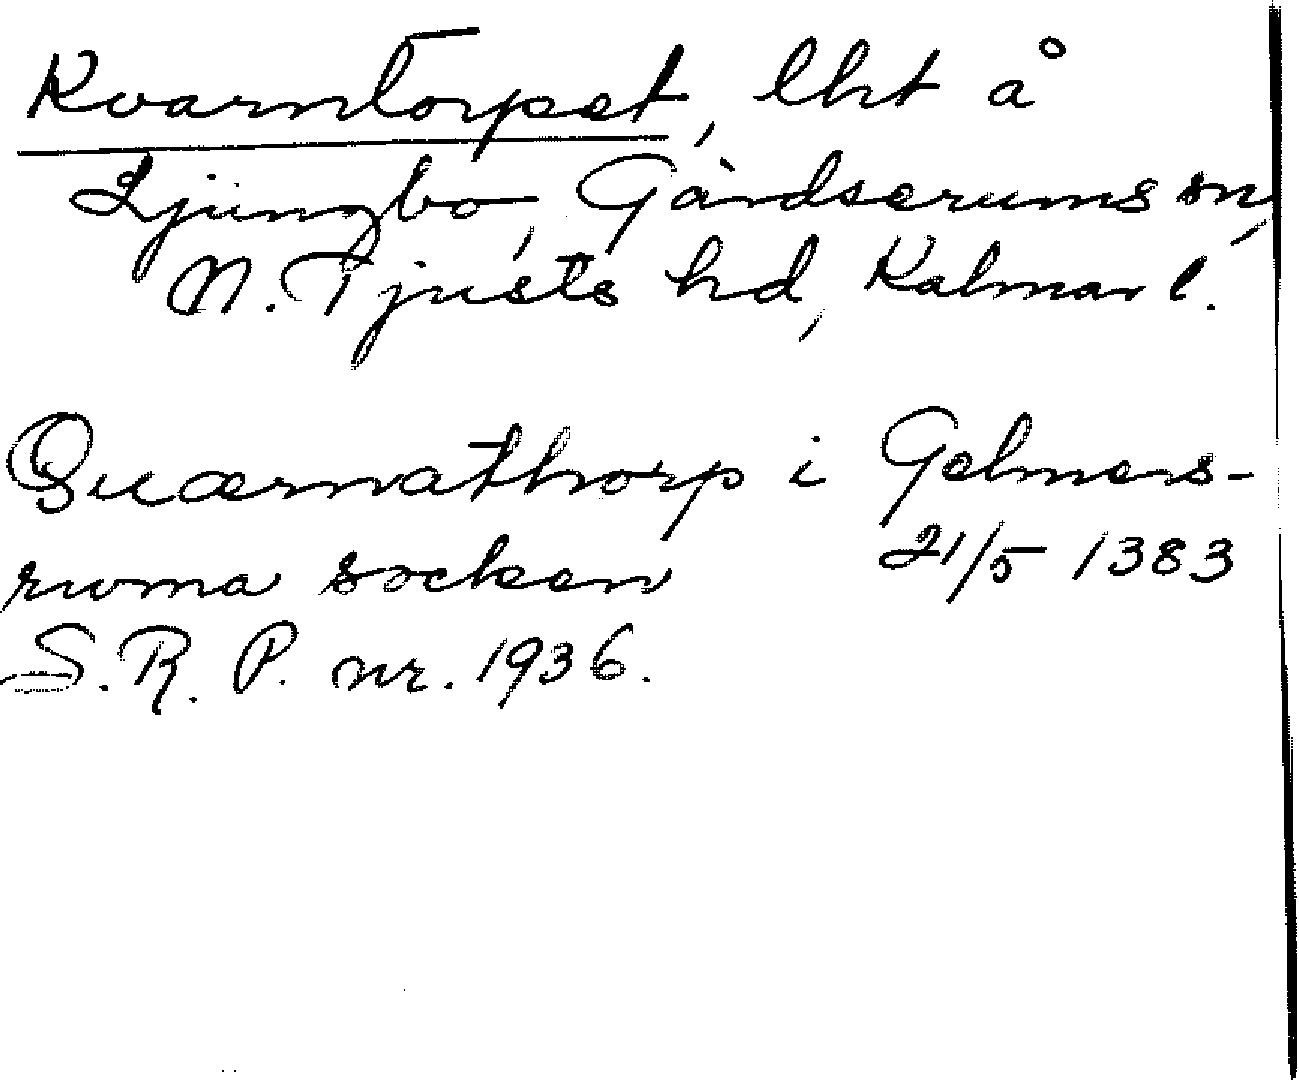 Kvarntorpet, lht å
Ljungbo, Gärdserums sn,
N. Tjusts hd, Kalmar l.
Quærnathorp i Gelmers-
ruma socken 21/5 1383
S.R.P. nr. 1936.